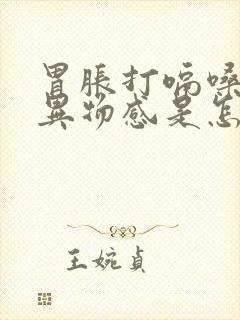 胃脹打嗝嗓
異物感是怎
王婉貞